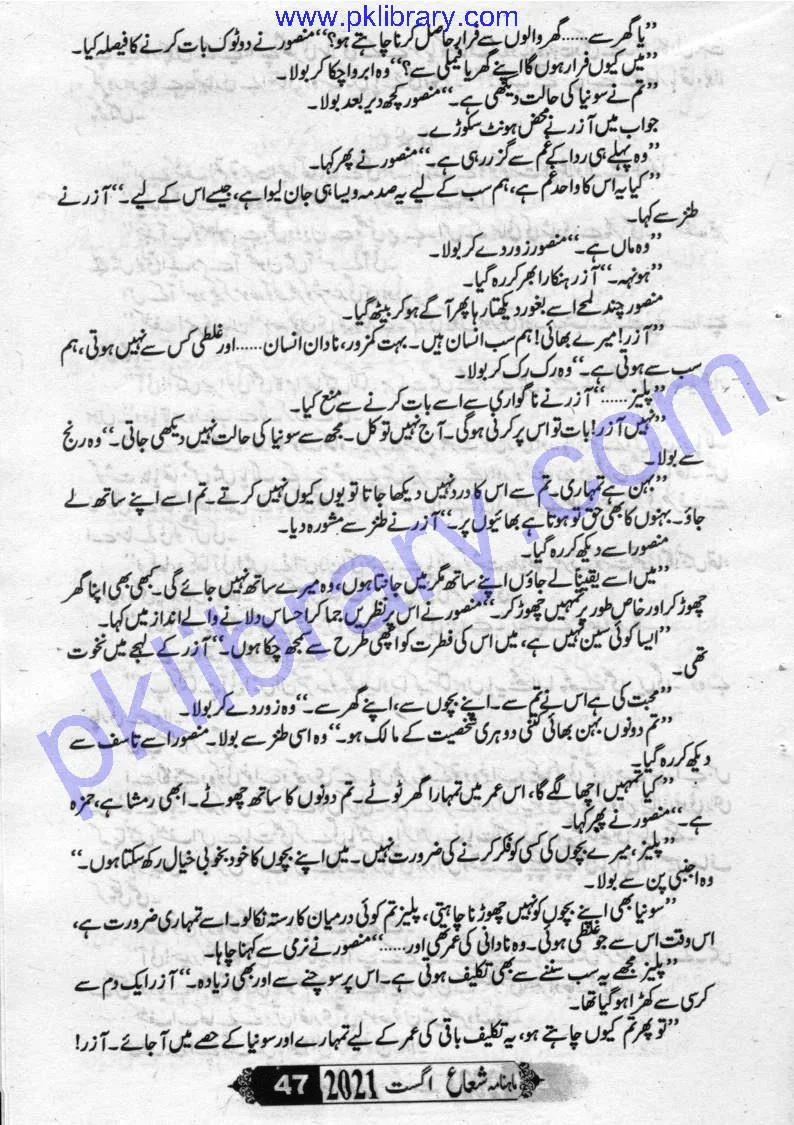 www.pklibrary.com
”یا گھر سے......گھر والوں سے فرار حاصل کرنا چاہتے ہو؟“ منصور نے دو ٹوک بات کرنے کا فیصلہ کیا۔
”میں کیوں فرار ہوں گا اپنے گھر یا فیملی سے؟“ وہ ابرو اچکا کر بولا۔
”تم نے سونیا کی حالت دیکھی ہے۔“ منصور کچھ دیر بعد بولا۔
جواب میں آزر نے محض ہونٹ سکوڑے۔
”وہ پہلے ہی ردا کے غم سے گزر رہی ہے۔“ منصور نے پھر کہا۔
”کیا یہ اس کا واحد غم ہے، ہم سب کے لیے یہ صدمہ ویسا ہی جان لیوا ہے، جیسے اس کے لیے۔“ آزر نے
طنز سے کہا۔
”وہ ماں ہے۔“ منصور زور دے کر بولا۔
”ہونہہ۔“ آزر ہنکارا بھر کر رہ گیا۔
منصور چند لمحے اسے بغور دیکھتا رہا پھر آگے ہو کر بیٹھ گیا۔
”آزر! میرے بھائی! ہم سب انسان ہیں۔ بہت کمزور، نادان انسان......اور غلطی کس سے نہیں ہوتی، ہم
سب سے ہوتی ہے۔“ وہ رک رک کر بولا۔
”پلیز......“ آزر نے ناگواری سے اسے بات کرنے سے منع کیا۔
”نہیں آزر! بات تو اس پر کرنی ہوگی۔ آج نہیں تو کل۔ مجھ سے سونیا کی حالت نہیں دیکھی جاتی۔“ وہ رنج
سے بولا۔
”بہن ہے تمہاری۔ تم سے اس کا درد نہیں دیکھا جاتا تو یوں کیوں نہیں کرتے۔ تم اسے اپنے ساتھ لے
جاؤ۔ بہنوں کا بھی حق تو ہوتا ہے بھائیوں پر۔“ آزر نے طنز سے مشورہ دیا۔
منصور اسے دیکھ کر رہ گیا۔
”میں اسے یقیناً لے جاؤں اپنے ساتھ مگر میں جانتا ہوں، وہ میرے ساتھ نہیں جائے گی۔ کبھی بھی اپنا گھر
چھوڑ کر اور خاص طور پر تمہیں چھوڑ کر۔“ منصور نے اس پر نظریں جما کر احساس دلانے والے انداز میں کہا۔
”ایسا کوئی سین نہیں ہے، میں اس کی فطرت کو اچھی طرح سے سمجھ چکا ہوں۔“ آزر کے لہجے میں نخوت
تھی۔
”محبت کی ہے اس نے تم سے۔ اپنے بچوں سے، اپنے گھر سے۔“ وہ زور دے کر بولا۔
”تم دونوں بہن بھائی کتنی دوہری شخصیت کے مالک ہو۔“ وہ اسی طنز سے بولا۔ منصور اسے تاسف سے
دیکھ کر رہ گیا۔
”کیا تمہیں اچھا لگے گا، اس عمر میں تمہارا گھر ٹوٹے۔ تم دونوں کا ساتھ چھوٹے۔ ابھی رمشا ہے، حمزہ
ہے۔“ منصور نے پھر کہا۔
”پلیز، میرے بچوں کی کسی کو فکر کرنے کی ضرورت نہیں۔ میں اپنے بچوں کا خود بخوبی خیال رکھ سکتا ہوں۔“
وہ اجنبی پن سے بولا۔
”سونیا بھی اپنے بچوں کو نہیں چھوڑنا چاہتی، پلیز تم کوئی درمیان کا رستہ نکالو۔ اسے تمہاری ضرورت ہے،
اس وقت اس سے جو غلطی ہوئی۔ وہ نادانی کی عمر تھی اور......“ منصور نے نرمی سے کہنا چاہا۔
”پلیز مجھے یہ سب سننے سے بھی تکلیف ہوتی ہے۔ اس پر سوچنے سے اور بھی زیادہ۔“ آزر ایک دم سے
کرسی سے کھڑا ہو گیا تھا۔
”تو پھر تم کیوں چاہتے ہو، یہ تکلیف باقی کی عمر کے لیے تمہارے اور سونیا کے حصے میں آ جائے۔ آزر!
pklibrary.com
ماہنامہ شعاع اگست 2021 47